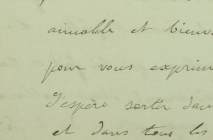 aimable et bienv
pour vous exprim
J'espère sortir dan
et dans tous les